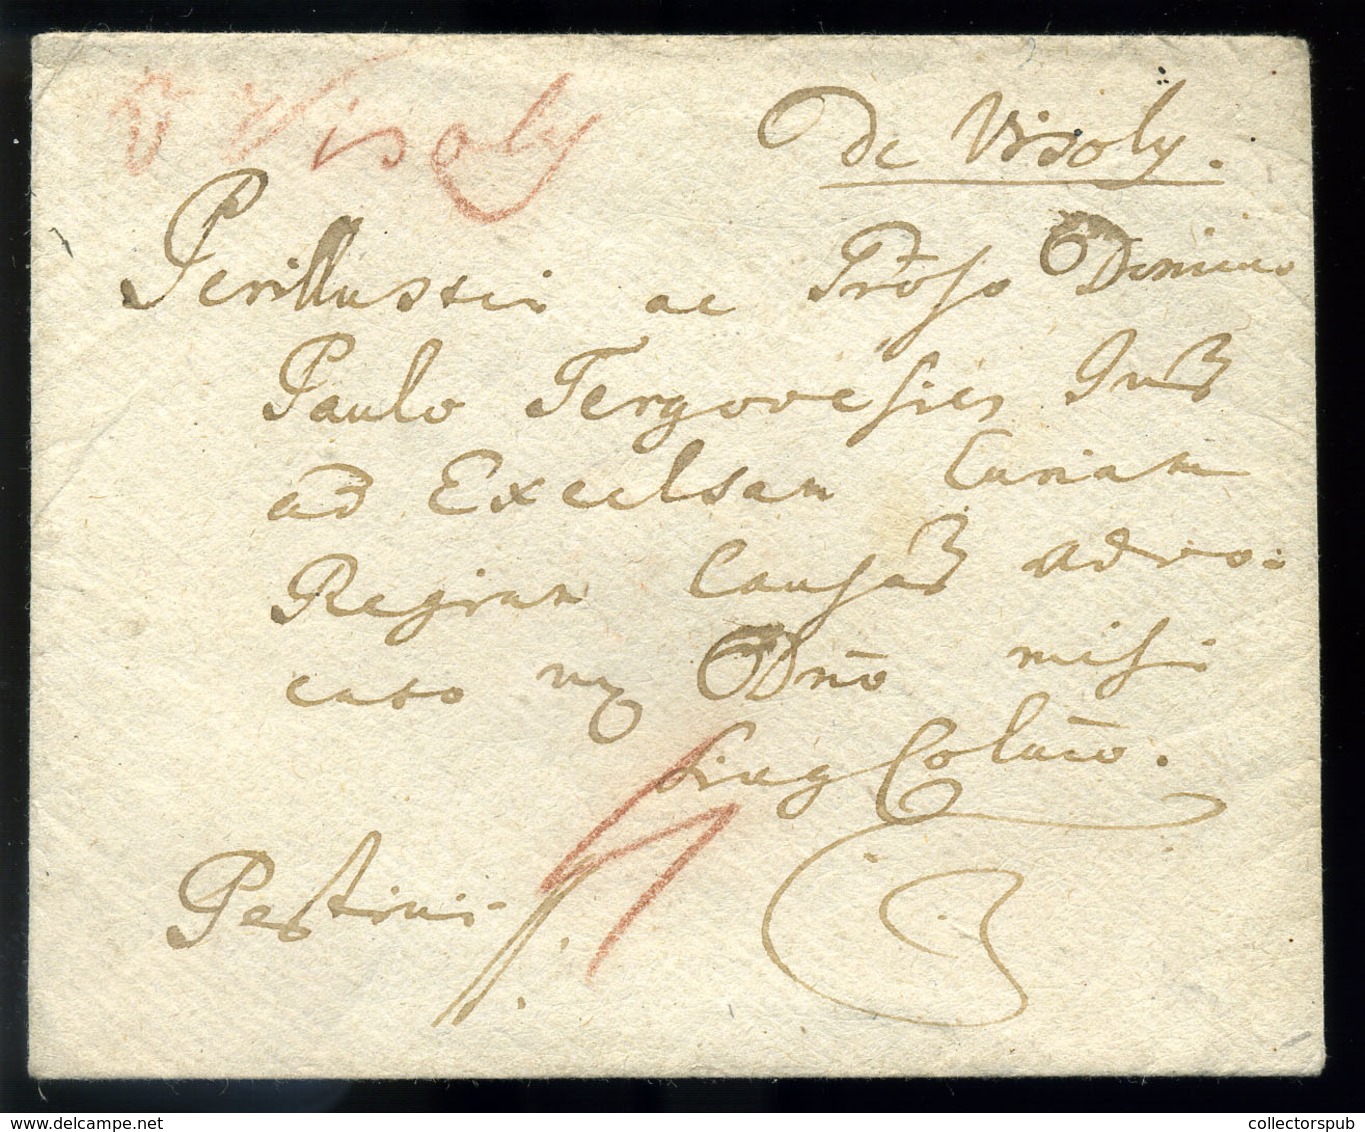 v Visoly
De Visoly.
Perillustri ac Proso Domino
Paulo Tergovcsics
ad Excelsam Curiam
Regiam Causar advo-
cato Dno misi
Sing Colmo.
Pestini
delcampe.net
collectorspub